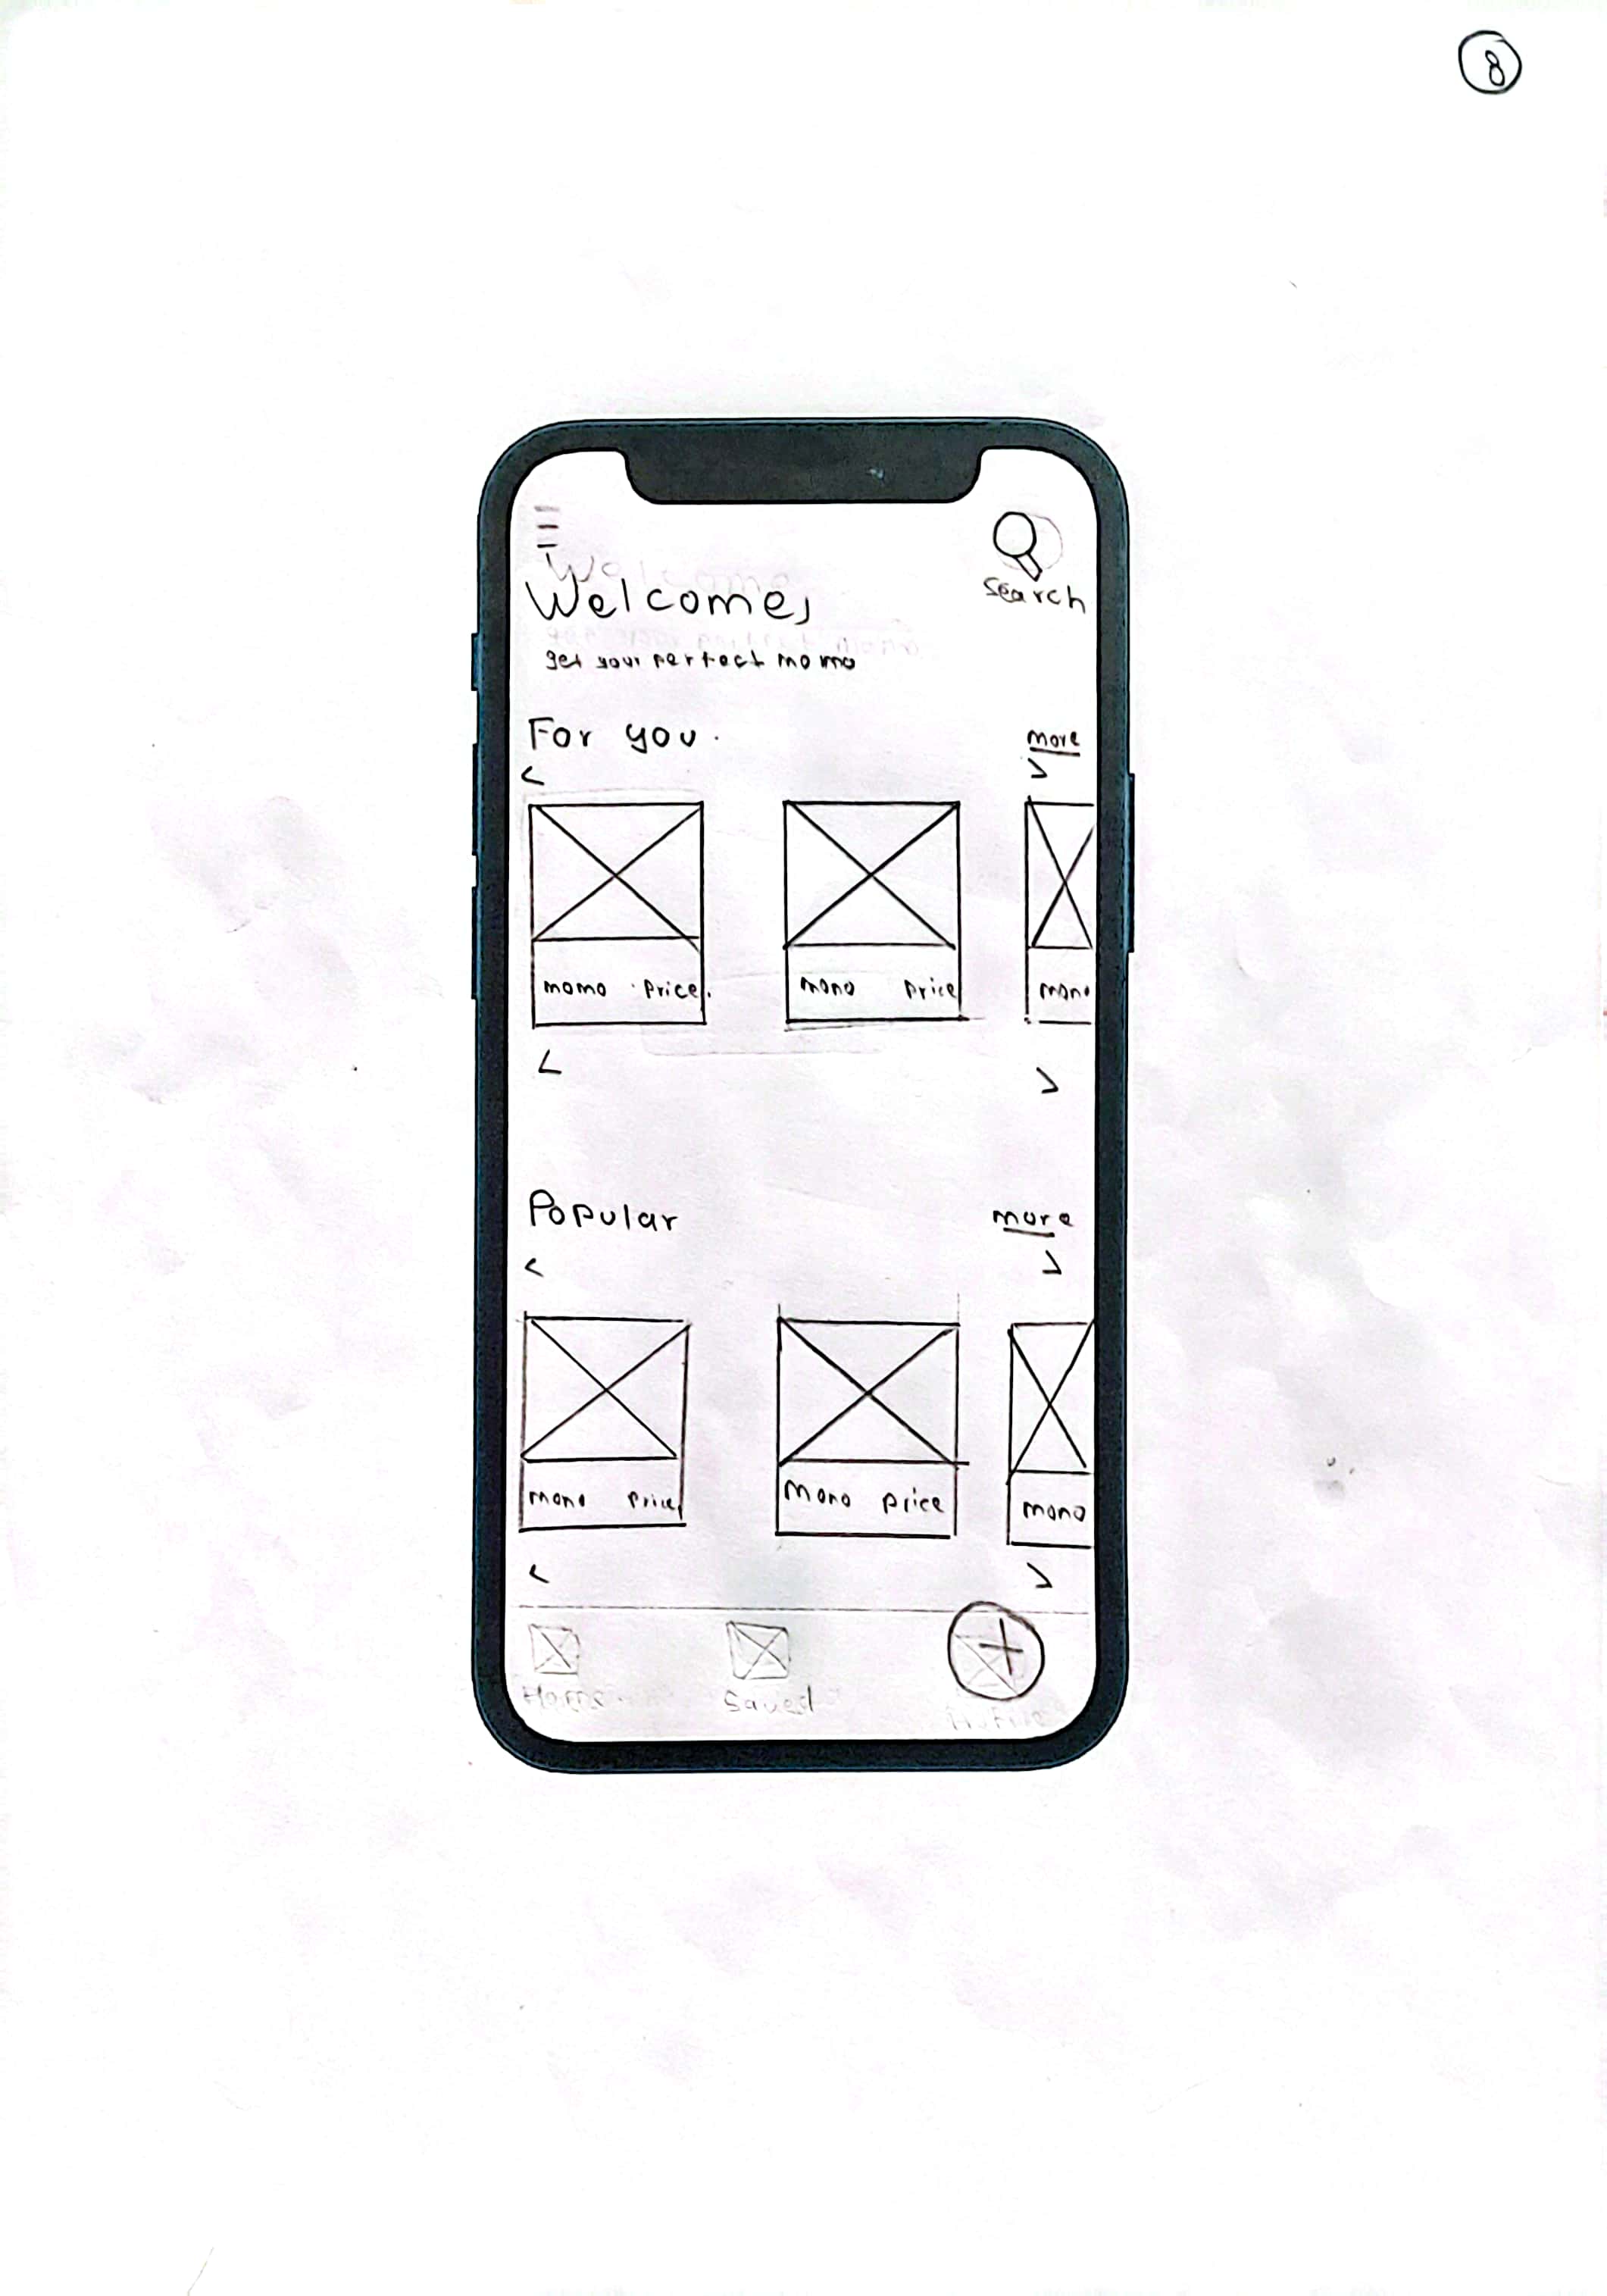 8
Welcome,
Search
get your perfect momo
For you.
more
< >
momo price. momo price momo
< >
Popular
more
< >
momo price momo price momo
< >
Home Saved Profile